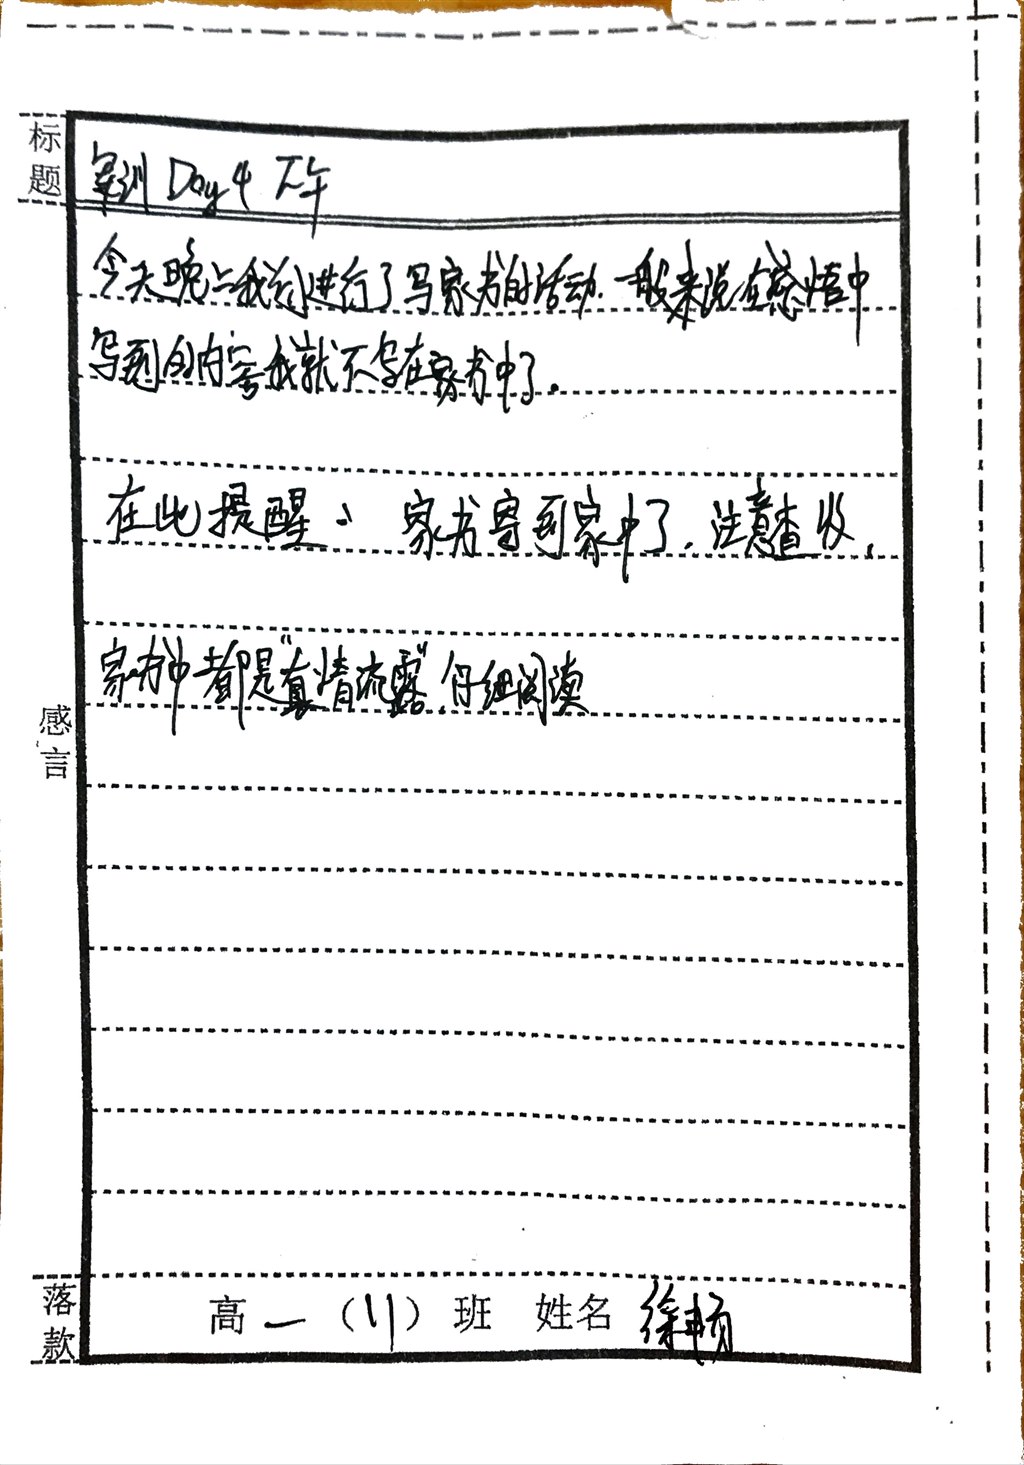 标题
军训 Day 4 下午
今天晚上我们进行了写家书的活动.一般来说在感悟中
写到的内容我就不写在家书中了.
在此提醒、家书寄到家中了.注意查收.
家书中都是“真情流露”.仔细阅读
感言
落款
高一（11）班 姓名 徐